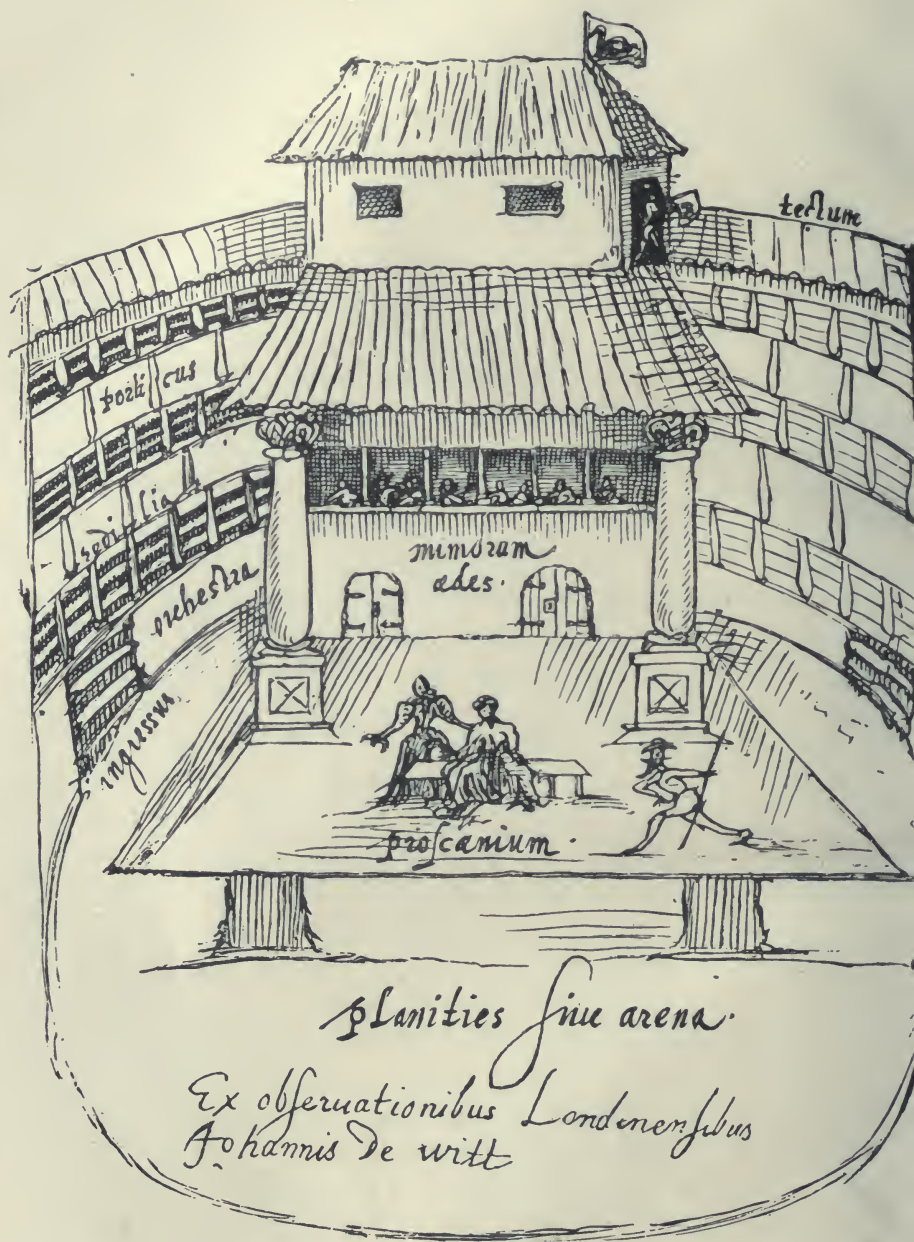 tectum
porticus
sedilia
orchestra
mimorum
ædes.
ingressus
proſcænium.
planities ſiue arena.
Ex obſeruationibus Londinenſibus
Johannis De witt